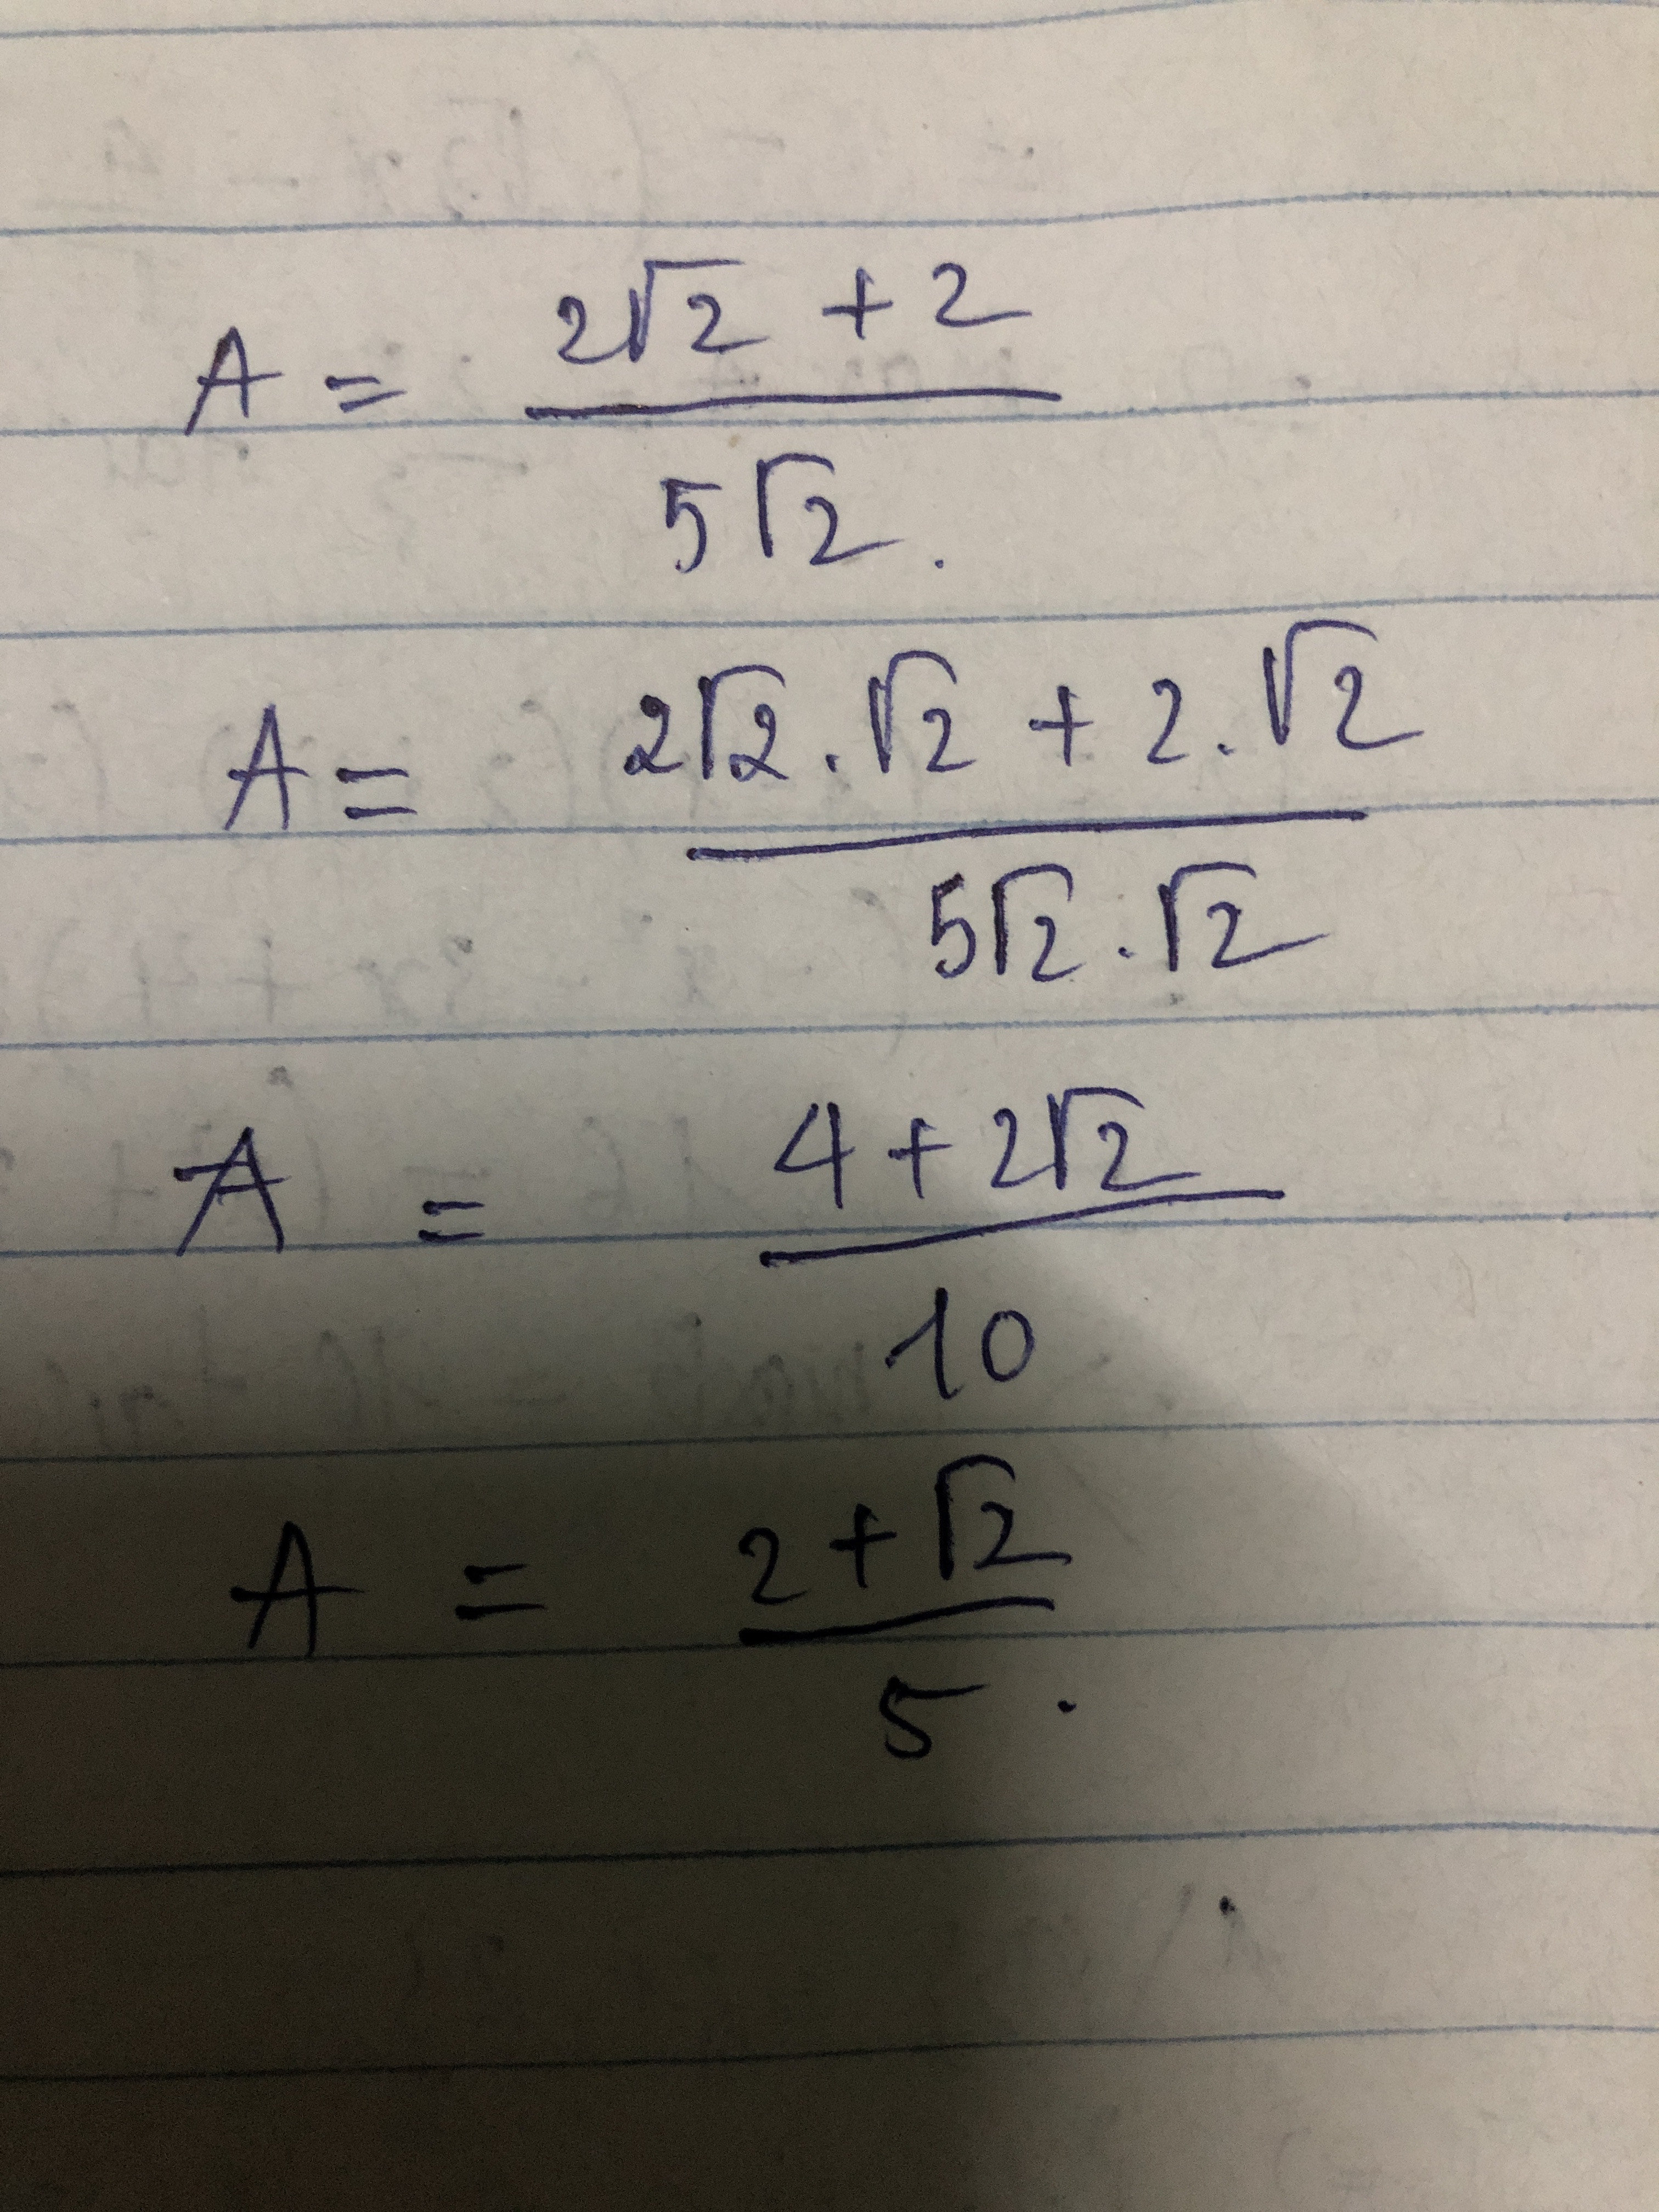 A = (2√2 + 2) / (5√2).
A = (2√2 . √2 + 2 . √2) / (5√2 . √2)
A = (4 + 2√2) / 10
A = (2 + √2) / 5.